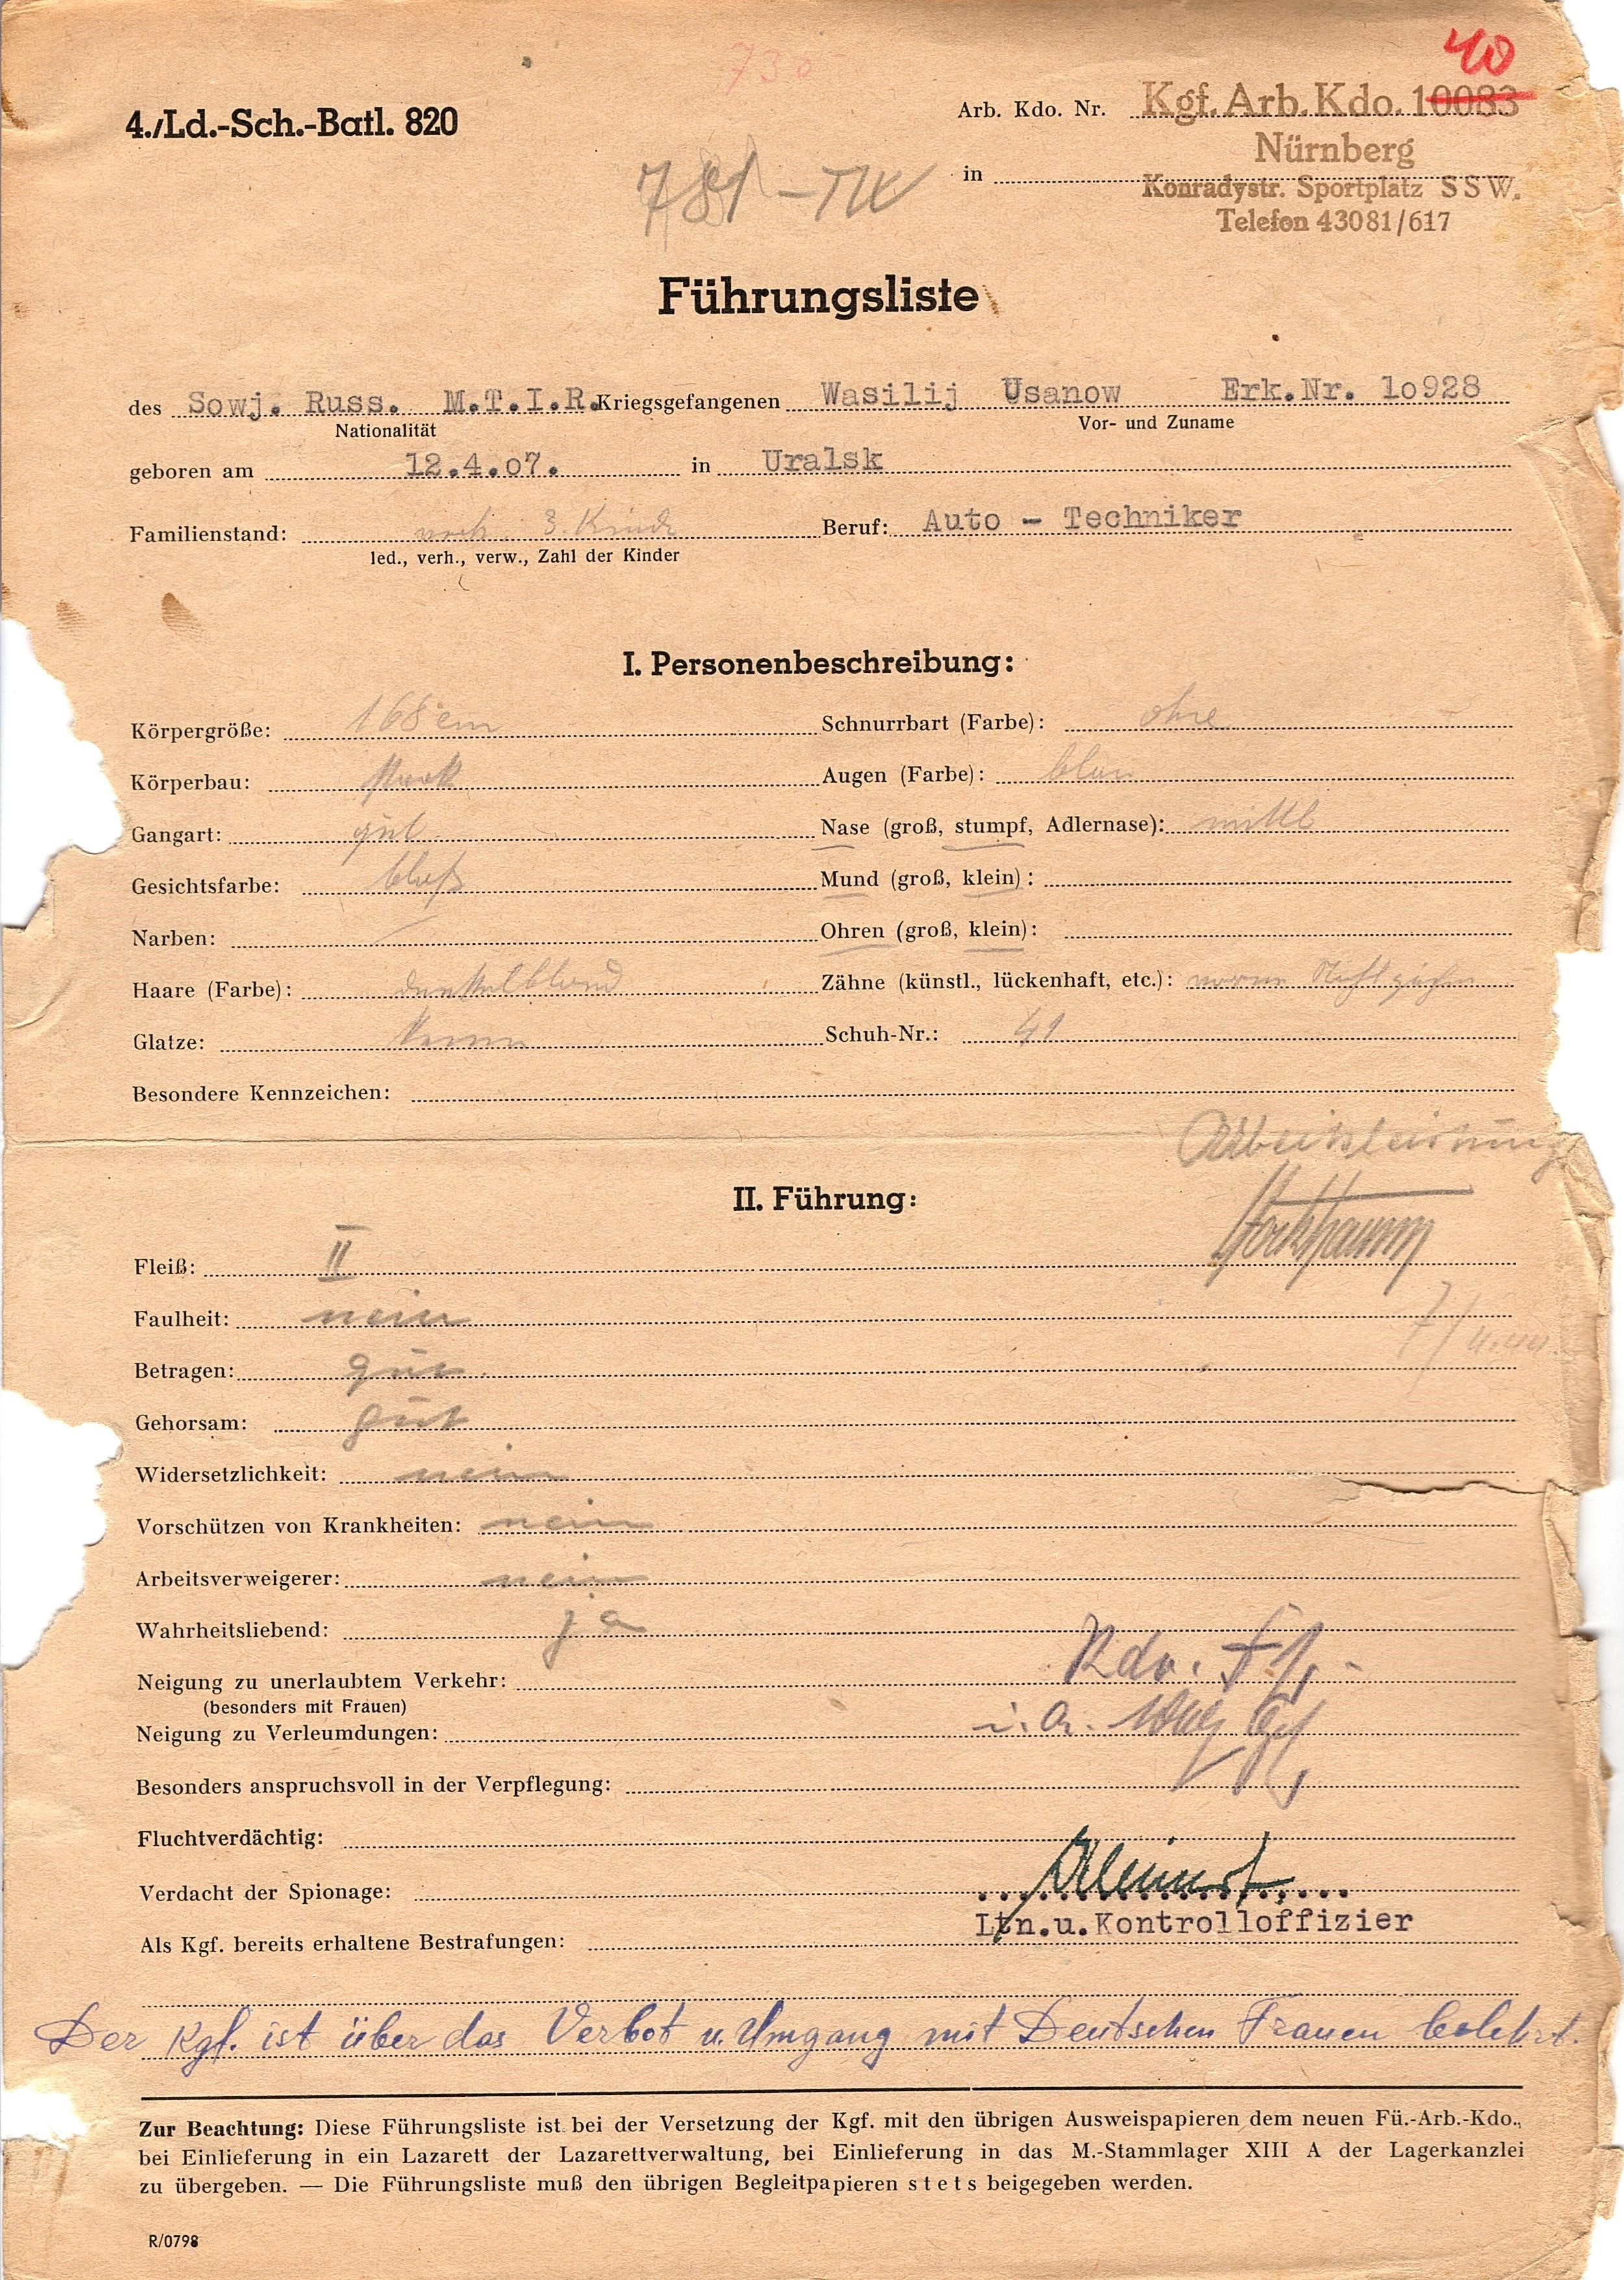 40
730
4./Ld.-Sch.-Batl. 820
Arb. Kdo. Nr. Kgf. Arb. Kdo. 10083
Nürnberg
in Konradystr. Sportplatz SSW.
Telefon 43081/617
781 - TW
Führungsliste
des Sowj. Russ. M.T.I.R. Kriegsgefangenen Wasilij Usanow Erk.Nr. lo928
Nationalität Vor- und Zuname
geboren am 12.4.o7. in Uralsk
Familienstand: verh. 3. Kinder Beruf: Auto - Techniker
led., verh., verw., Zahl der Kinder
I. Personenbeschreibung:
Körpergröße: 168 cm Schnurrbart (Farbe): ohne
Körperbau: stark Augen (Farbe): blau
Gangart: gut Nase (groß, stumpf, Adlernase): mittl
Gesichtsfarbe: blaß Mund (groß, klein):
Narben: Ohren (groß, klein):
Haare (Farbe): dunkelblond Zähne (künstl., lückenhaft, etc.): vorne
Glatze: keine Schuh-Nr.: 41
Besondere Kennzeichen:
Arbeitsleistung
II. Führung:
Fleiß: II
Faulheit: nein
Betragen: gut
Gehorsam: gut
Widersetzlichkeit: nein
Vorschützen von Krankheiten: nein
Arbeitsverweigerer: nein
Wahrheitsliebend: ja
Neigung zu unerlaubtem Verkehr: Kdo.
(besonders mit Frauen)
Neigung zu Verleumdungen: i. A.
Besonders anspruchsvoll in der Verpflegung:
Fluchtverdächtig:
Verdacht der Spionage:
Ltn.u.Kontrolloffizier
Als Kgf. bereits erhaltene Bestrafungen:
Der Kgf. ist über das Verbot u. Umgang mit Deutschen Frauen belehrt.
Zur Beachtung: Diese Führungsliste ist bei der Versetzung der Kgf. mit den übrigen Ausweispapieren dem neuen Fü.-Arb.-Kdo.,
bei Einlieferung in ein Lazarett der Lazarettverwaltung, bei Einlieferung in das M.-Stammlager XIII A der Lagerkanzlei
zu übergeben. — Die Führungsliste muß den übrigen Begleitpapieren stets beigegeben werden.
R/0798